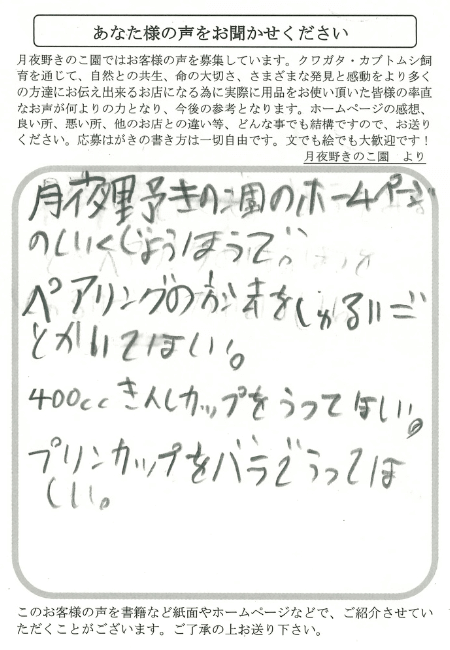 あなた様の声をお聞かせください
月夜野きのこ園ではお客様の声を募集しています。クワガタ・カブトムシ飼
育を通じて、自然との共生、命の大切さ、さまざまな発見と感動をより多く
の方達にお伝え出来るお店になる為に実際に用品をお使い頂いた皆様の率直
なお声が何よりの力となり、今後の参考となります。ホームページの感想、
良い所、悪い所、他のお店との違い等、どんな事でも結構ですので、お送り
ください。応募はがきの書き方は一切自由です。文でも絵でも大歓迎です！
月夜野きのこ園　より
月夜野きのこ園のホームページ
のしいくじょうほうで。
ペアリングの方才をしゅるいご
とかいてほしい。
400cc きんしカップをうってほしい。
プリンカップをバラでうってほ
しい。
このお客様の声を書籍など紙面やホームページなどで、ご紹介させてい
ただくことがございます。ご了承の上お送り下さい。